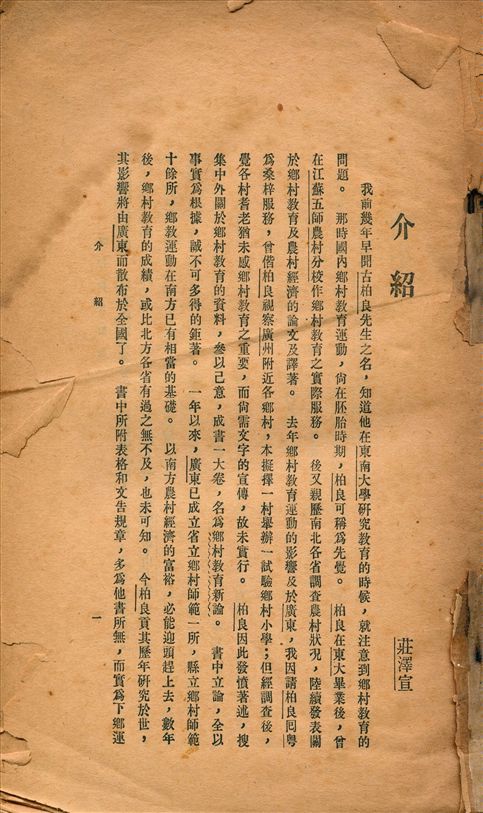 介紹
莊澤宣
我前幾年早聞古柏良先生之名，知道他在東南大學研究教育的時候，就注意到鄉村教育的
問題。　那時國內鄉村教育運動，尙在胚胎時期，柏良可稱爲先覺。　柏良在東大畢業後，曾
在江蘇五師農村分校作鄉村教育之實際服務。　後又親歷南北各省調查農村狀況，陸續發表關
於鄉村教育及農村經濟的論文及譯著。　去年鄉村教育運動的影響及於廣東，我因請柏良囘粵
爲桑梓服務，曾偕柏良視察廣州附近各鄉村，本擬擇一村舉辦一試驗鄉村小學；但經調查後，
覺各村耆老猶未感鄉村教育之重要，而尙需文字的宣傳，故未實行。　柏良因此發憤著述，搜
集中外關於鄉村教育的資料，叅以己意，成書一大卷，名爲鄉村教育新論。　書中立論，全以
事實爲根據，誠不可多得的鉅著。　一年以來，廣東已成立省立鄉村師範一所，縣立鄉村師範
十餘所，鄉教運動在南方已有相當的基礎。　以南方農村經濟的富裕，必能迎頭趕上去，數年
後，鄉村教育的成績，或比北方各省有過之無不及，也未可知。　今柏良貢其歷年研究於世，
其影響將由廣東而散布於全國了。　書中所附表格和文告規章，多爲他書所無，而實爲下鄉運
介紹
一